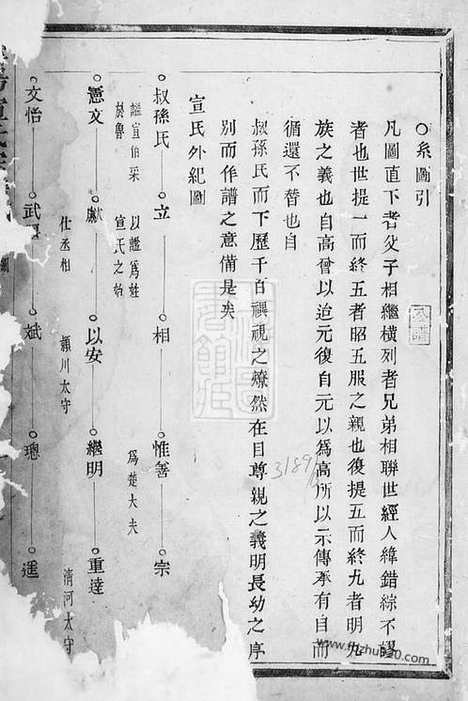 ○系圖引
凡圖直下者父子相繼橫列者兄弟相聯世經人緯錯綜不謬
者也世提一而終五者昭五服之親也復提五而終九者明九
族之義也自高曾以迨元復自元以爲高所以示傳承有自而
循還不替也自
叔孫氏而下歷千百禩視之燎然在目尊親之義明長幼之序
別而作譜之意備是矣
宣氏外紀圖
叔孫氏 立 相 惟善 宗
謚宣伯采 以謚爲姓 爲楚大夫
於魯 宣氏之始
憲文 獻 以安 繼明 重達
仕丞相 潁川太守 清河太守
文怡 武 斌 璁 遥
3189
www.fzhzhu80.com